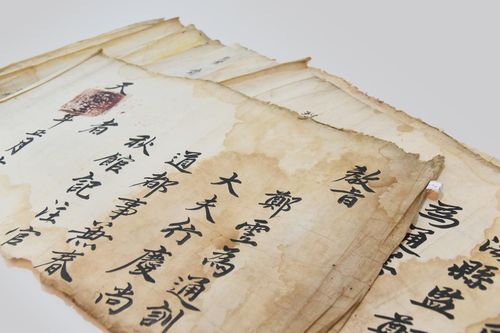 教旨
鄭雲為通訓
大夫行慶尚
道都事兼春
秋館記注官
者
天
年
月
為通
縣監